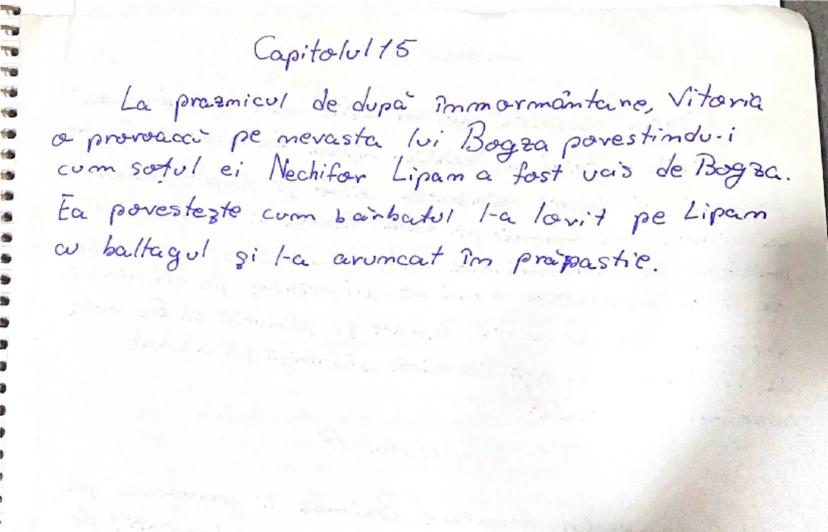 Capitolul 15
La praznicul de după înmormântare, Vitoria
o provoacă pe nevasta lui Bogza povestindu-i
cum soțul ei Nechifor Lipan a fost ucis de Bogza.
Ea povestește cum bărbatul l-a lovit pe Lipan
cu baltagul și l-a aruncat în prăpastie.